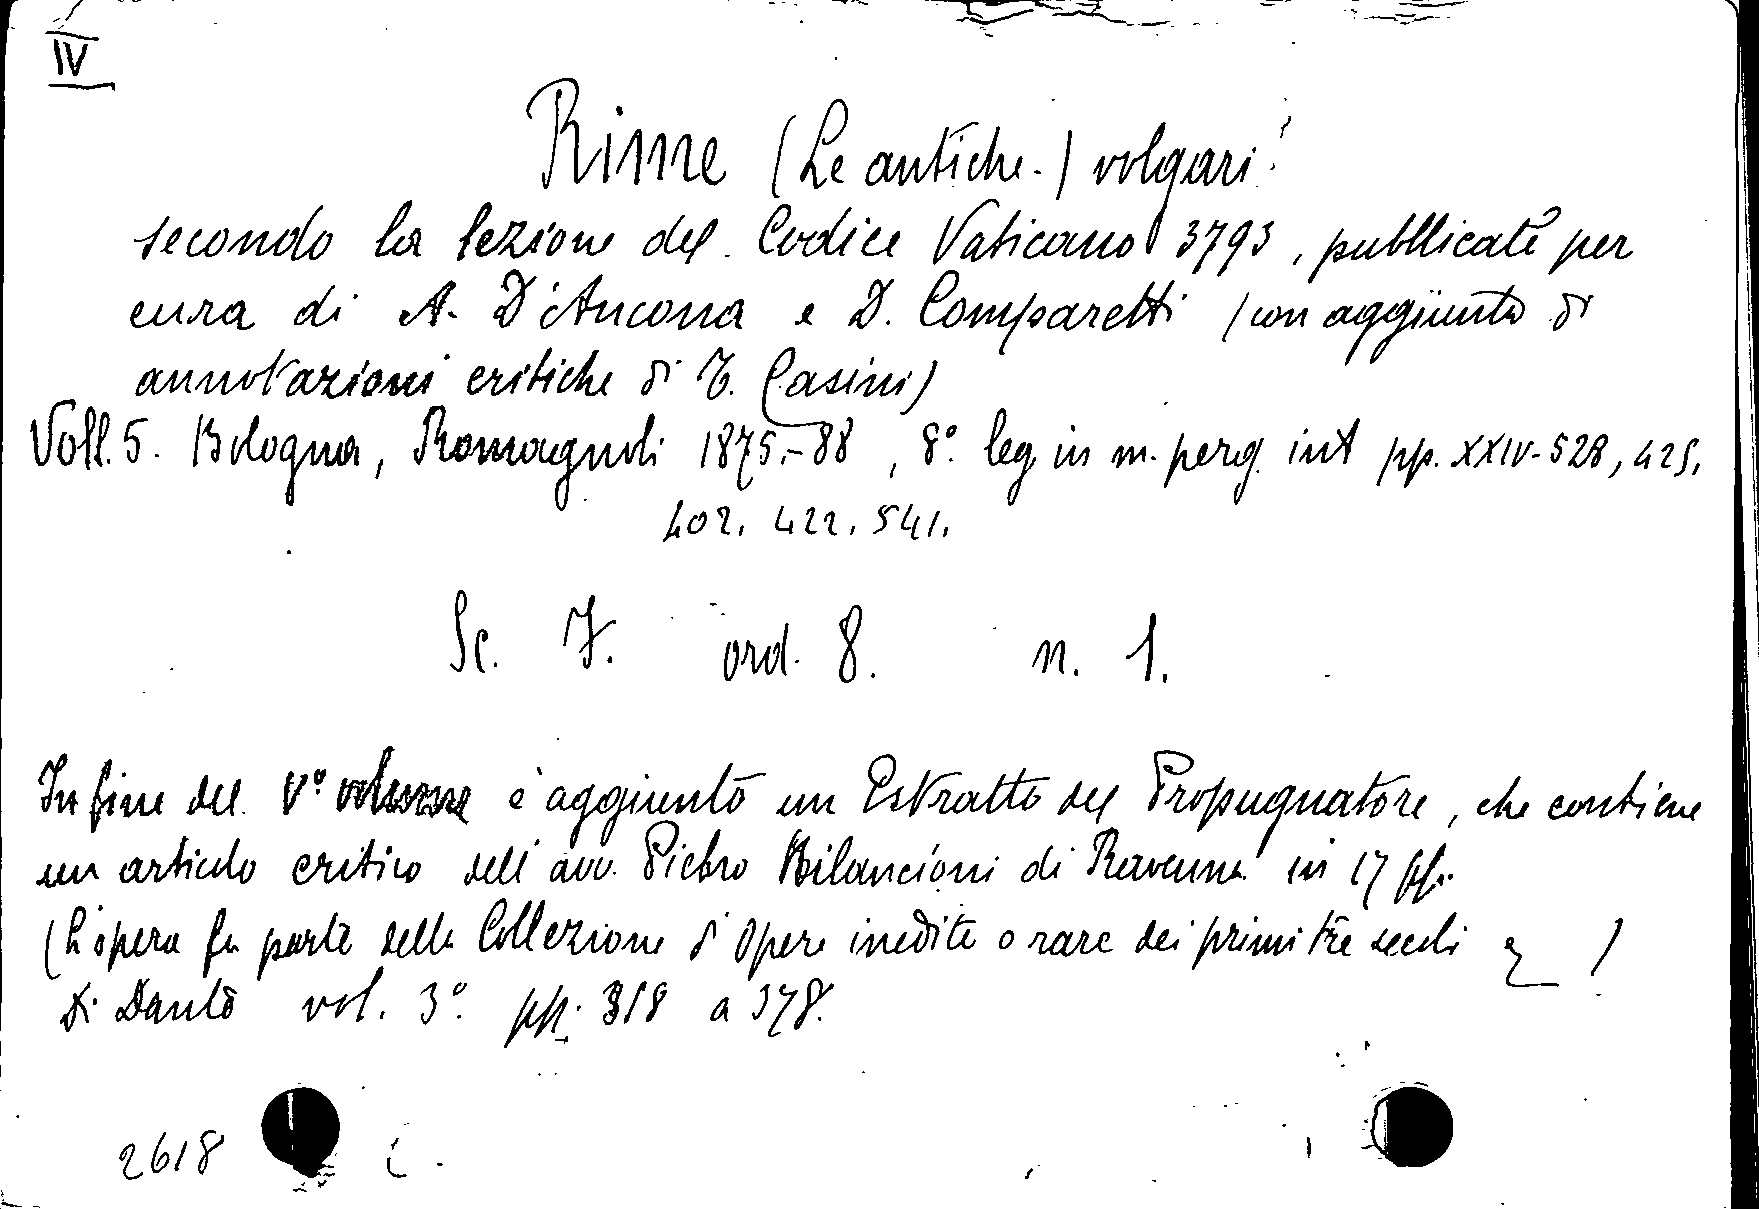 IV
Rime (Le antiche.) volgari
secondo la lezione del Codice Vaticano 3793, pubblicate per
cura di A. D'Ancona e D. Comparetti (con aggiunta di
annotazioni critiche di T. Casini)
Voll. 5. Bologna, Romagnoli 1875.-88, 8° leg. in m. perg. int pp. XXIV-528, 425,
402. 422. 541.
Sc. 7. ord. 8. n. 1.
In fine del V° volume è aggiunto un Estratto del Propugnatore, che contiene
un articolo critico dell'avv. Pietro Bilancioni di Ravenna in 17 pp.
(L'opera fa parte della Collezione di Opere inedite o rare dei primi tre secoli )
Di Dante vol. 3° pp. 318 a 378.
2618